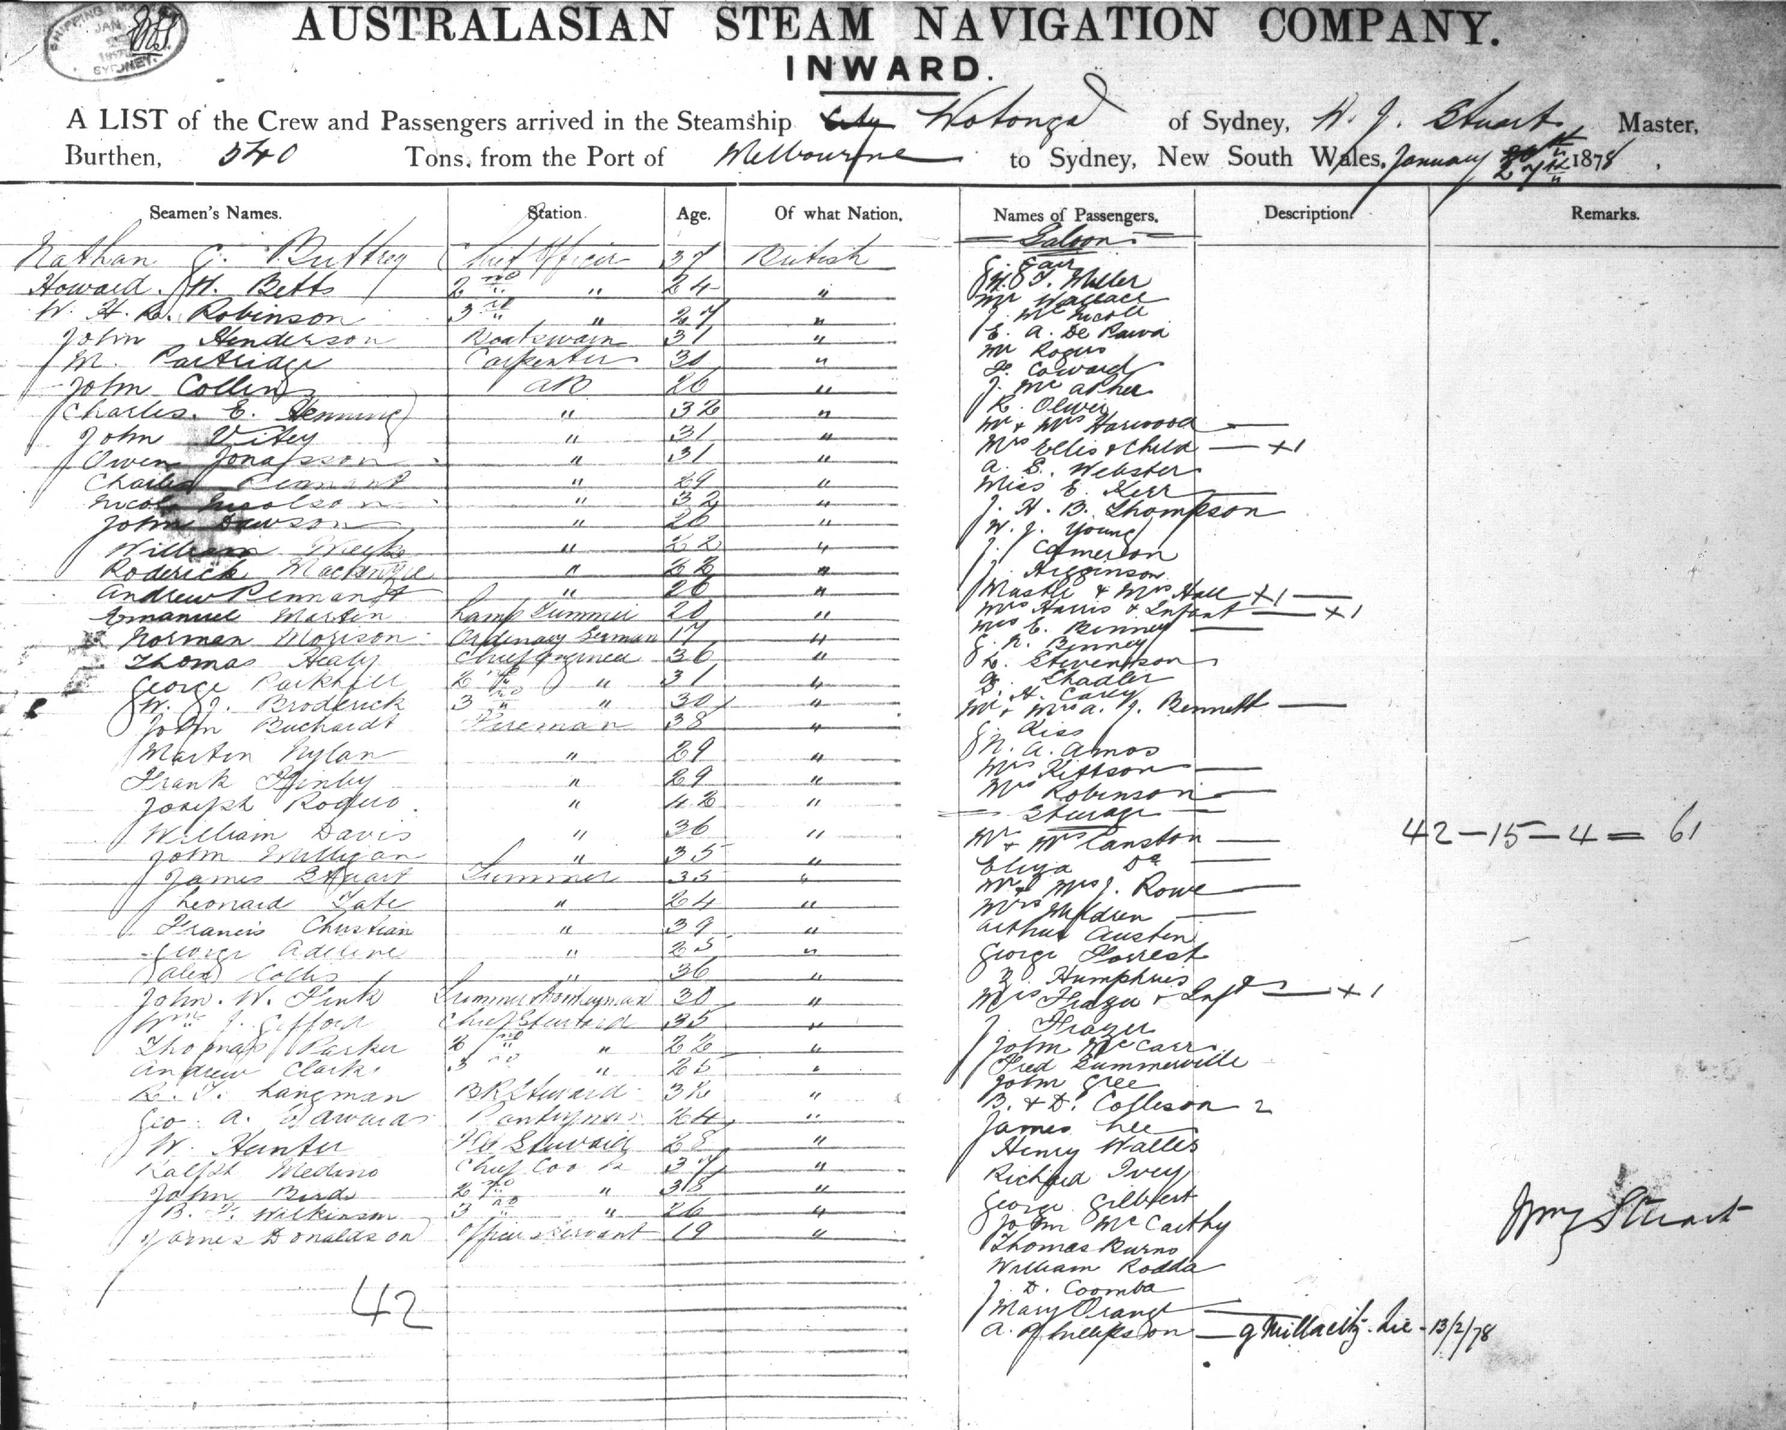 SHIPPING MASTER JAN SYDNEY.
AUSTRALASIAN STEAM NAVIGATION COMPANY.
INWARD.
A LIST of the Crew and Passengers arrived in the Steamship City Wotonga of Sydney, W. J. Stuart Master,
Burthen, 540 Tons. from the Port of Melbourne to Sydney, New South Wales, January 27th 1878
Seamen's Names. Station. Age. Of what Nation. Names of Passengers. Description. Remarks.
Saloon
Nathan G. Buttrey Chief Officer 37 British
Howard W. Betts 2nd " 24 "
W. H. Robinson 3rd " 27 "
John Henderson Boatswain 31 "
M. Partridge Carpenter 30 "
John Collins AB 26 "
Charles. E. Henning " 32 "
John Vitey " 31 "
Owen Jonasson " 31 "
Charles Pennant " 29 "
Nicol Nicolson " 32 "
John Dawson " 26 "
William " 22 "
Roderick Mackenzie " "
Andrew Pennant " 26 "
Emanuel Martin Lamp Trimmer 20 "
Norman Morison Ordenary Seaman 17 "
Thomas Healy Chief Engineer 36 "
George Parkhill 2nd " 31 "
W. J. Broderick 3rd " 30 "
John Buchardt Fireman 38 "
Martin Nylan " 29 "
Frank " 29 "
Joseph Rogers. " 42 "
William Davis " 36 "
John Milligan " 35 "
James Stuart Trimmer 35 "
Leonard Tate " 24 "
Francis Christian " 39 "
George Adeline " 25 "
Alex " 36 "
John. W. Fink Trimmer & Donkeyman 30 "
Wm J. Gifford Chief Steward 35 "
Thomas Parker 2nd " 22 "
Andrew Clark 3rd " 25 "
R. T. Langman BR Steward 32 "
Geo. A. Edwards Pantryman 24 "
W. Hunter Steward 28 "
Ralph Medino Chief Cook 37 "
John Bird 2nd " 38 "
B. F. Wilkinson 3rd " 26 "
James Donaldson Officers Servant 19 "
42
G. Fair
W. J. T. Miller
Mr Wallace
J. McNicoll
E. A. De Paiva
Mr Rogers
F. Coward
J. McArther
R. Oliver
Mr & Mrs Harwood —
Mrs Ellis & Child — x1
A. E. Webster
Miss E. Kerr —
J. H. B. Thompson
W. J. Young
J. Cameron
J. Higginson
Master & Mrs Hall x1 —
Mrs Harris & Infant — x1
Mrs E. Binney —
G. N. Binney
L. Stevenson
Chadler
H. Carey
Mr & Mrs A. J. Bennett —
G. Kiss
N. A. Amos
Mrs Kittson —
Mrs Robinson —
Steerage
Mr & Mrs Canston —
Eliza Do —
Mr & Mrs J. Rowe —
Mrs —
Arthur Austen
George Forrest
Humphris
Mrs Frazer & Inft — x1
J. Frazer
John McCarr
Fred Summerville
John Gree
B. & D. Colleson 2
James Lee
Henry Walles
Richard Ivey
George Gilbert
John McCarthy
Thomas Burns
William Rodda
J. D. Coomba
Mary Orange —
A. Phillipson — 13/2/78
42 — 15 — 4 = 61
Wm J Stuart